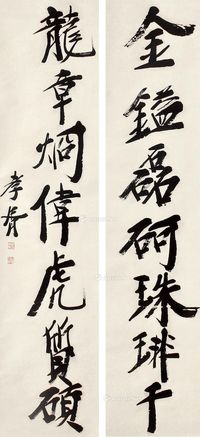 金鎰磊砢珠琲千
龍章炳偉虎質碩
孝胥